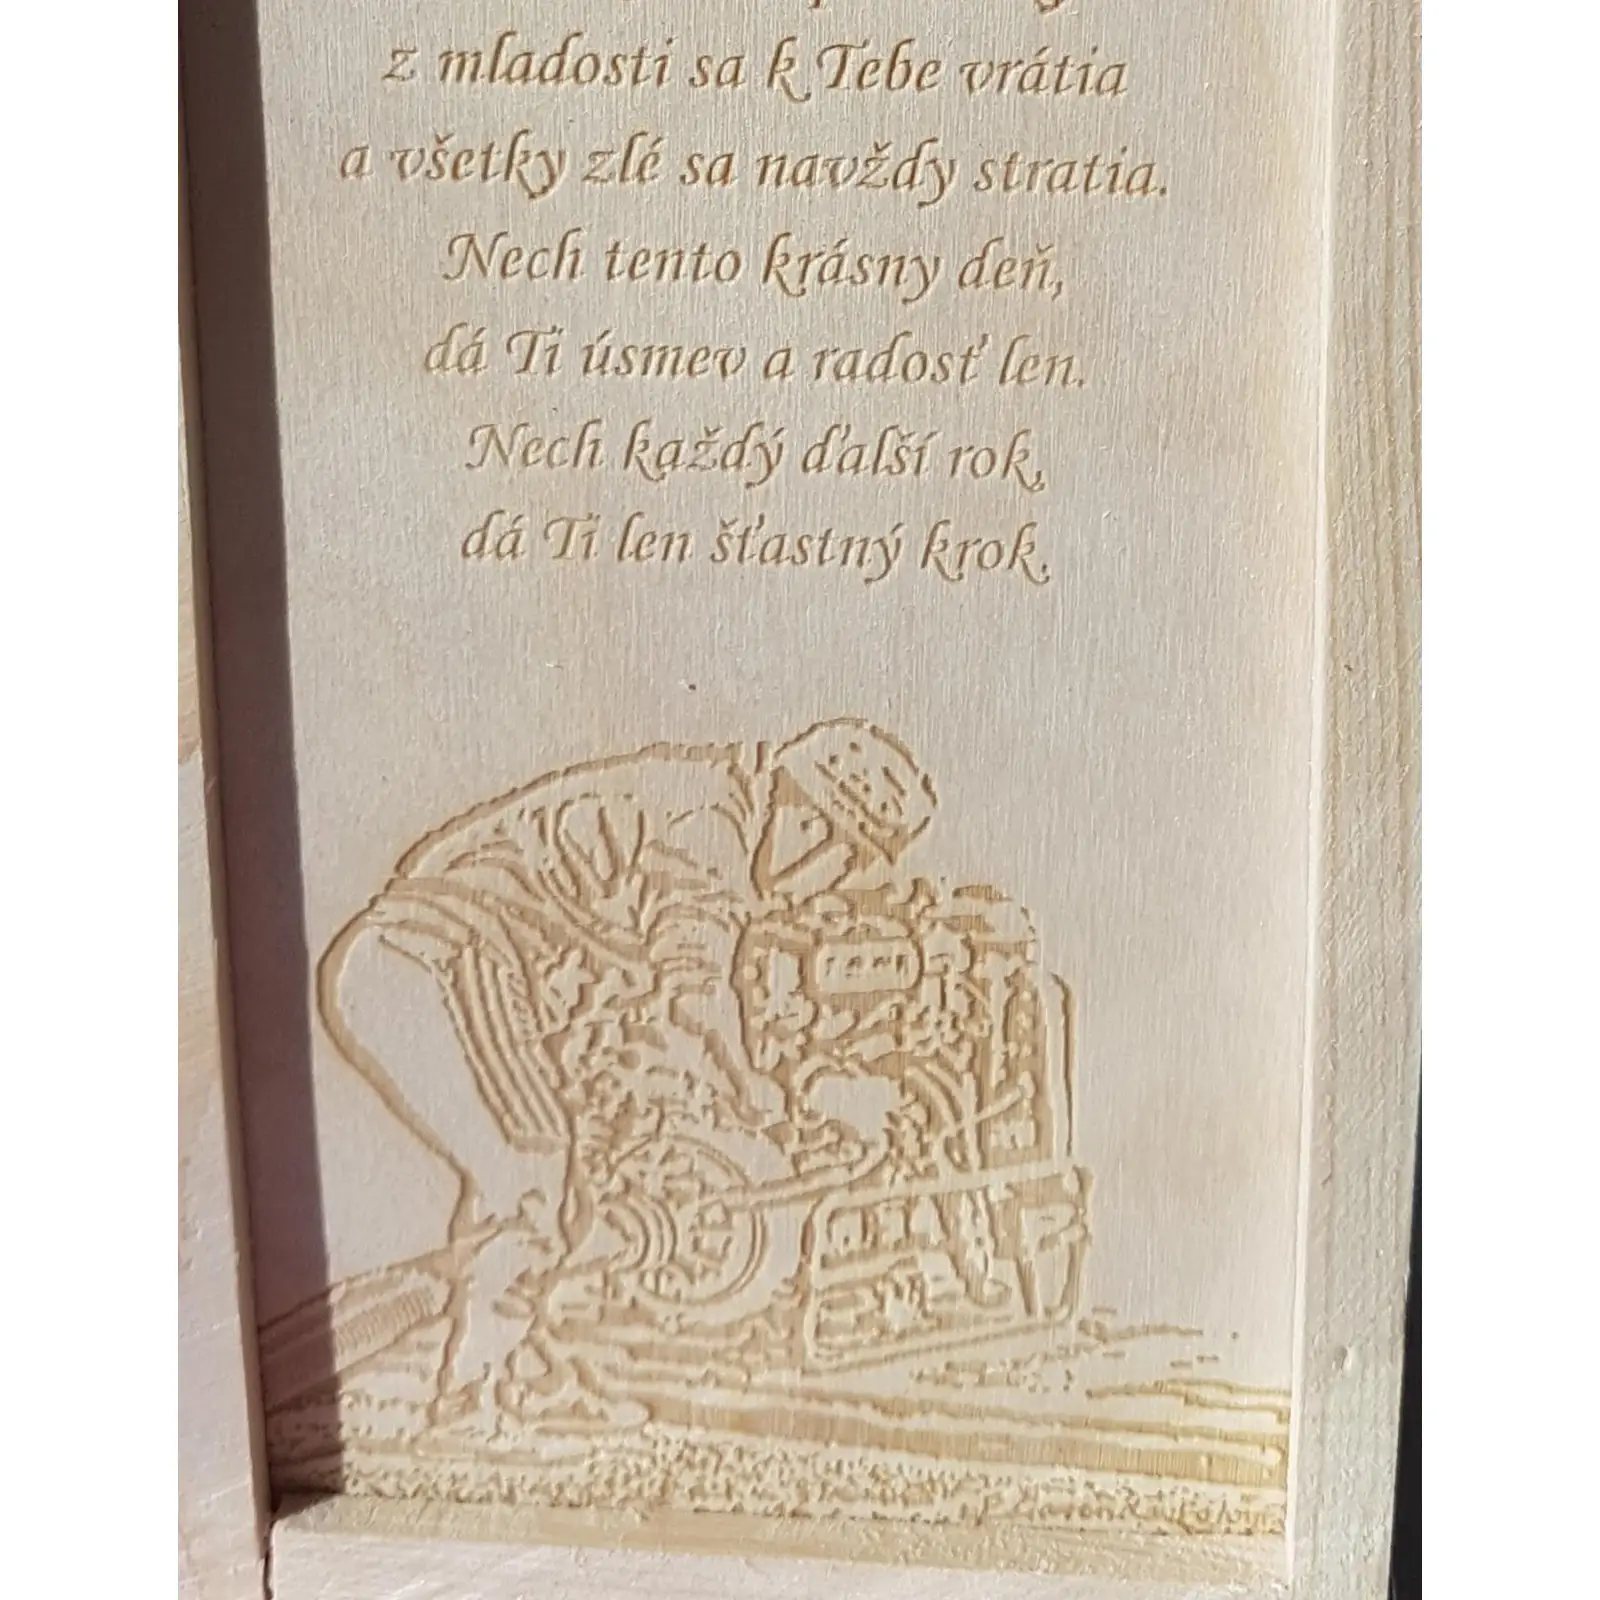 z mladosti sa k Tebe vrátia
a všetky zlé sa navždy stratia.
Nech tento krásny deň,
dá Ti úsmev a radosť len.
Nech každý ďalší rok,
dá Ti len šťastný krok.